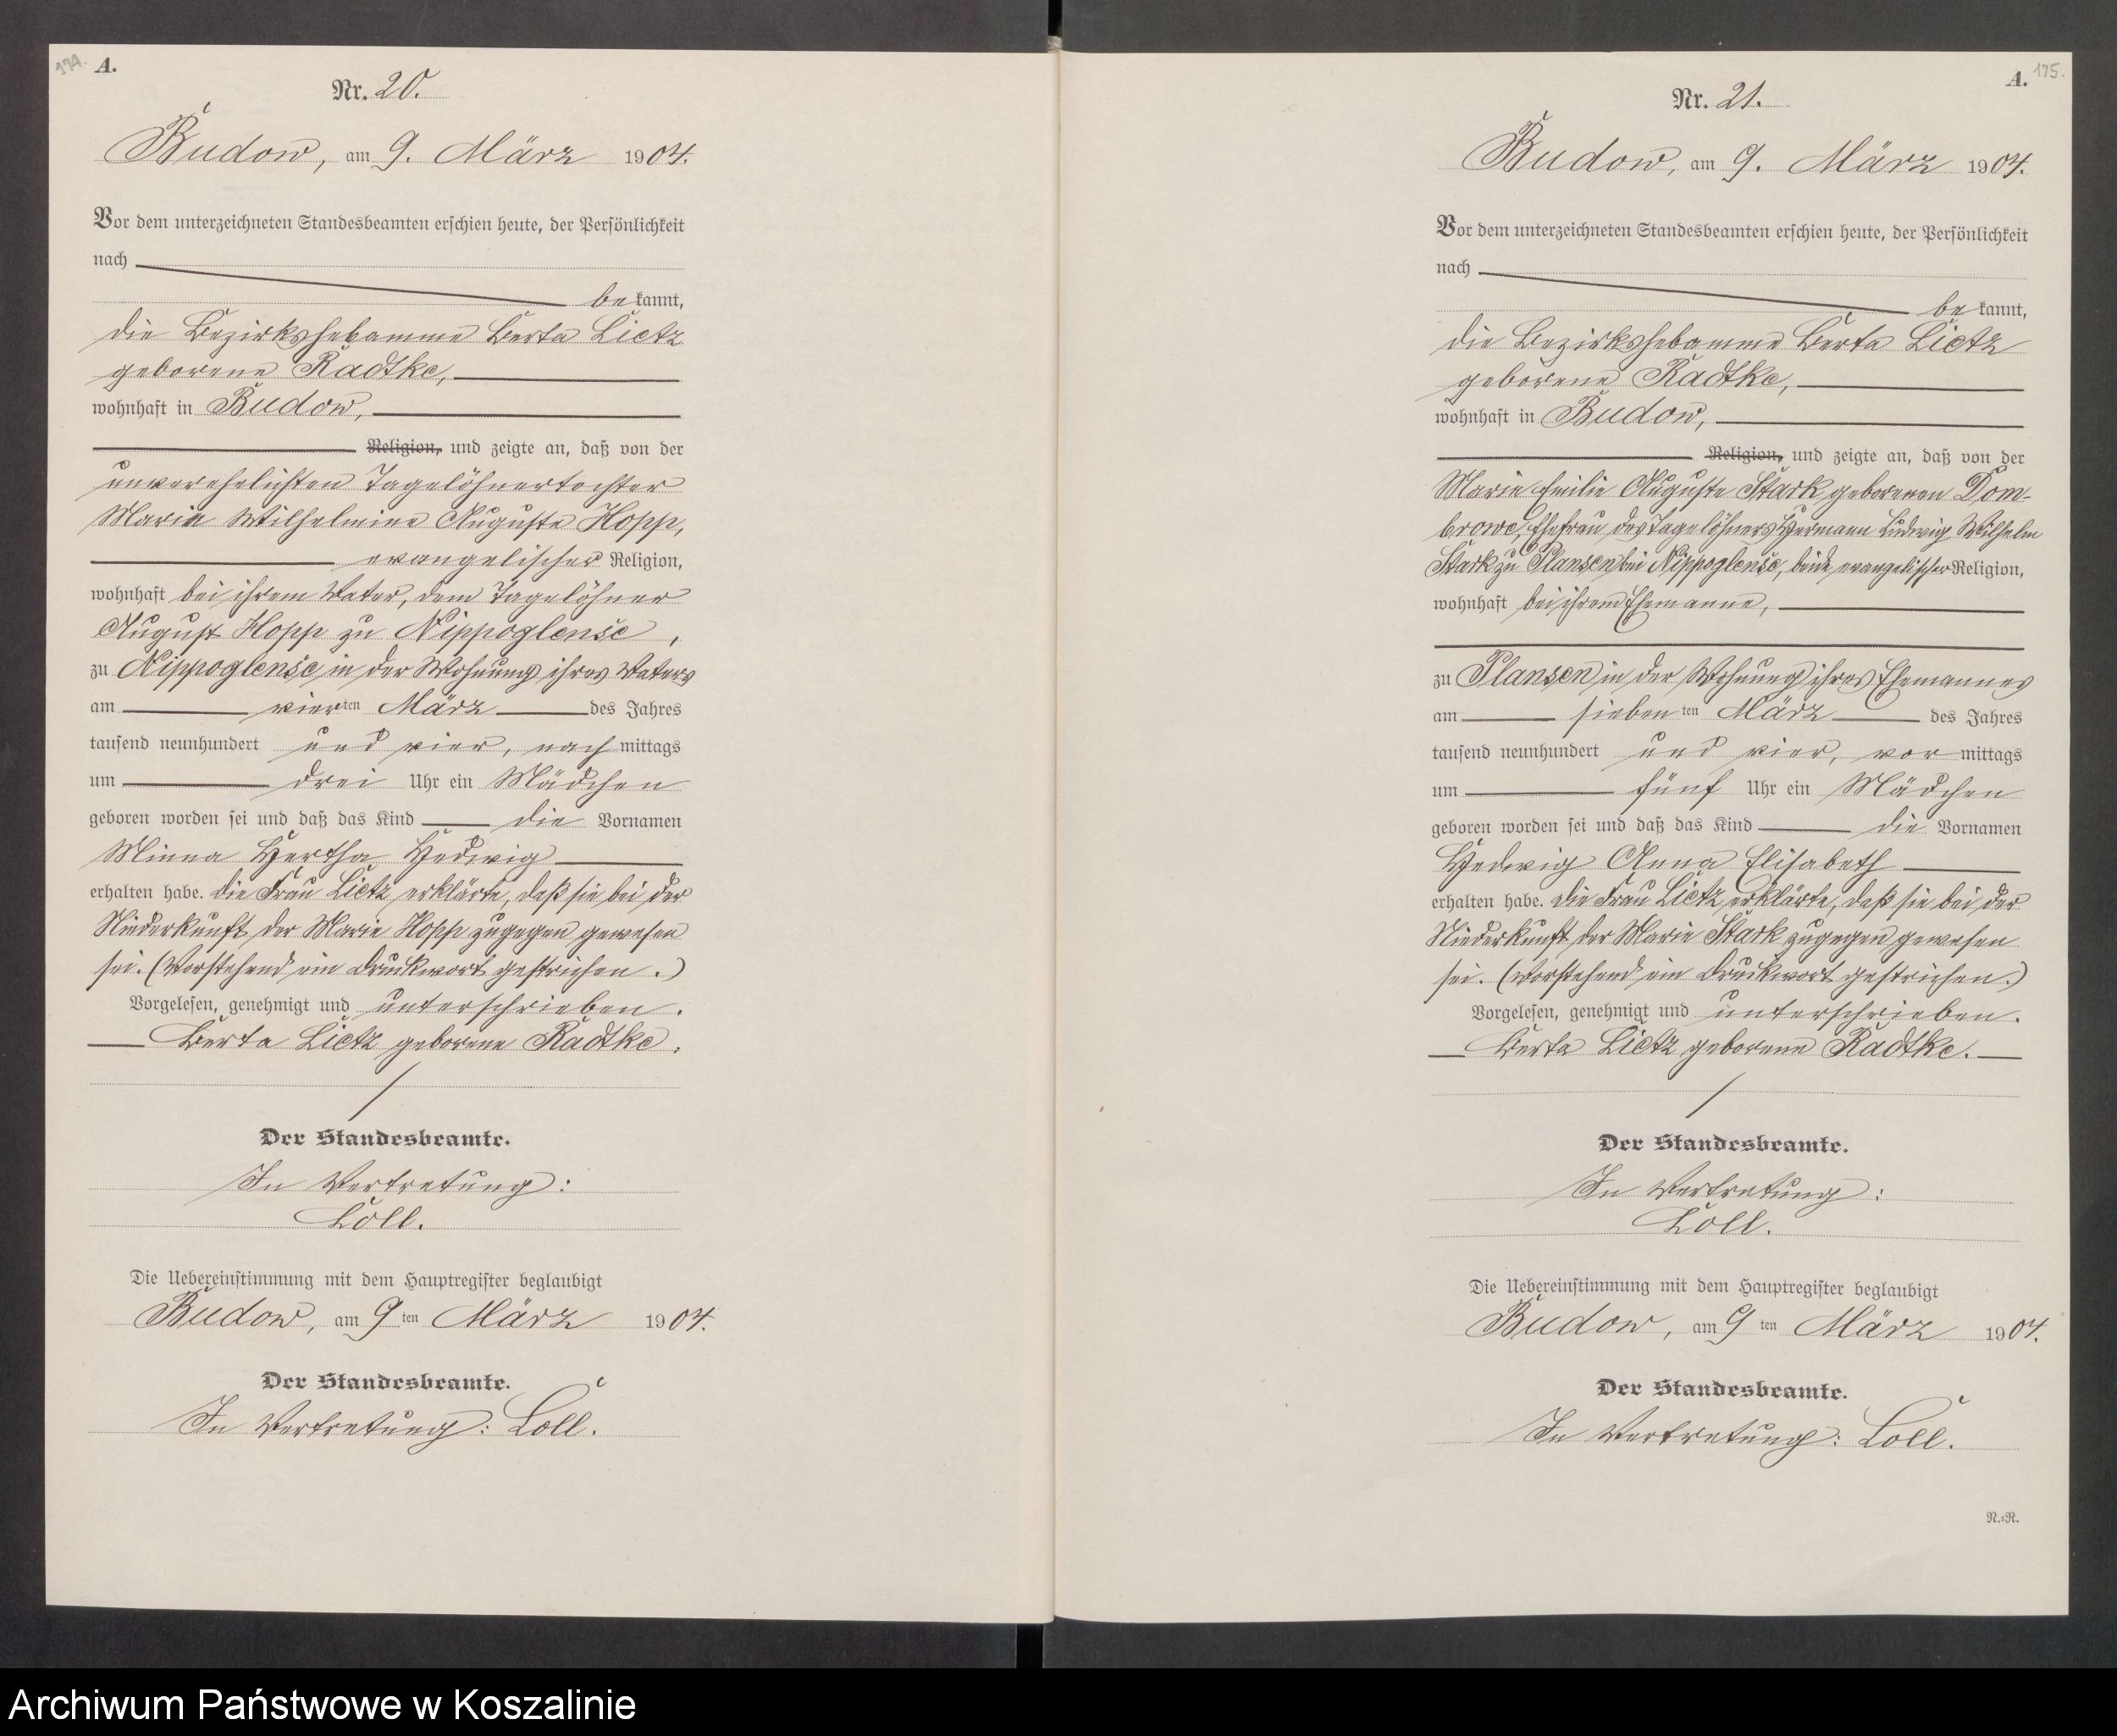 174.
A.
Nr. 20.
Budow, am 9. März 1904.
Vor dem unterzeichneten Standesbeamten erschien heute, der Persönlichkeit
nach
bekannt,
die Bezirkshebamme Berta Lietz
geborene Radtke,
wohnhaft in Budow,
Religion, und zeigte an, daß von der
unverehelichten Tagelöhnertochter
Marie Wilhelmine Auguste Hopp,
evangelischer Religion,
wohnhaft bei ihrem Vater, dem Tagelöhner
August Hopp zu Nippoglense,
zu Nippoglense in der Wohnung ihres Vaters
am vierten März des Jahres
tausend neunhundert und vier, nachmittags
um drei Uhr ein Mädchen
geboren worden sei und daß das Kind die Vornamen
Minna Hertha Hedwig
erhalten habe. Die Frau Lietz erklärte, daß sie bei der
Niederkunft der Marie Hopp zugegen gewesen
sei. (Vorstehend ein Druckwort gestrichen.)
Vorgelesen, genehmigt und unterschrieben.
Berta Lietz geborene Radtke.
Der Standesbeamte.
In Vertretung:
Loll.
Die Uebereinstimmung mit dem Hauptregister beglaubigt
Budow, am 9ten März 1904.
Der Standesbeamte.
In Vertretung: Loll.
A.
175.
Nr. 21.
Budow, am 9. März 1904.
Vor dem unterzeichneten Standesbeamten erschien heute, der Persönlichkeit
nach
bekannt,
die Bezirkshebamme Berta Lietz
geborene Radtke,
wohnhaft in Budow,
Religion, und zeigte an, daß von der
Marie Emilie Auguste Stark geborenen Dom-
browe, Ehefrau des Tagelöhners Hermann Ludwig Wilhelm
Stark zu Plansen bei Nippoglense, beide evangelischer Religion,
wohnhaft bei ihrem Ehemanne,
zu Plansen in der Wohnung ihres Ehemannes
am siebenten März des Jahres
tausend neunhundert und vier, vormittags
um fünf Uhr ein Mädchen
geboren worden sei und daß das Kind die Vornamen
Hedwig Anna Elisabeth
erhalten habe. Die Frau Lietz erklärte, daß sie bei der
Niederkunft der Marie Stark zugegen gewesen
sei. (Vorstehend ein Druckwort gestrichen.)
Vorgelesen, genehmigt und unterschrieben.
Berta Lietz geborene Radtke.
Der Standesbeamte.
In Vertretung:
Loll.
Die Uebereinstimmung mit dem Hauptregister beglaubigt
Budow, am 9ten März 1904.
Der Standesbeamte.
In Vertretung: Loll.
N.=R.
Archiwum Państwowe w Koszalinie